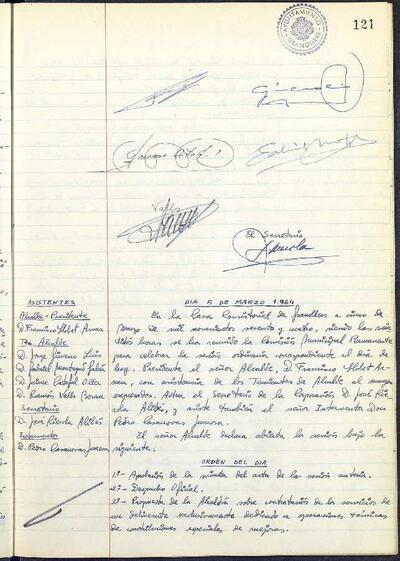 121
AYUNTAMIENTO
GRANOLLERS
Valls
El Secretario
ASISTENTES
Alcalde-Presidente
D. Francisco Llobet Arnan
Ttes Alcalde
D. Jorge
D. Gabriel
D. Jaime Catafal
D. Ramón Valls
Secretario
D. José Ricola Alibés
Interventor
D. Pedro Casanovas
DIA 5 DE MARZO 1.964
En la Casa Consistorial de Granollers a cinco de
Marzo de mil novecientos sesenta y cuatro, siendo las
horas se ha reunido la Comisión Municipal Permanente
para celebrar la sesión ordinaria correspondiente al día de
hoy. Preside el señor Alcalde, D. Francisco Llobet Ar-
nan, con asistencia de los Tenientes de Alcalde al margen
expresados. Actua el Secretario de la Corporación D. José Ri-
cola Alibés, y asiste también el señor Interventor Don
Pedro Casanovas
El señor Alcalde declara abierta la sesión bajo la
siguiente:
ORDEN DEL DIA
1º- Aprobación de la minuta del acta de la sesión anterior.
2º- Despacho Oficial.
3º- Propuesta de la Alcaldía sobre contratación de los servicios de
un delineante exclusivamente dedicado a operaciones técnicas
de contribuciones especiales de mejoras.